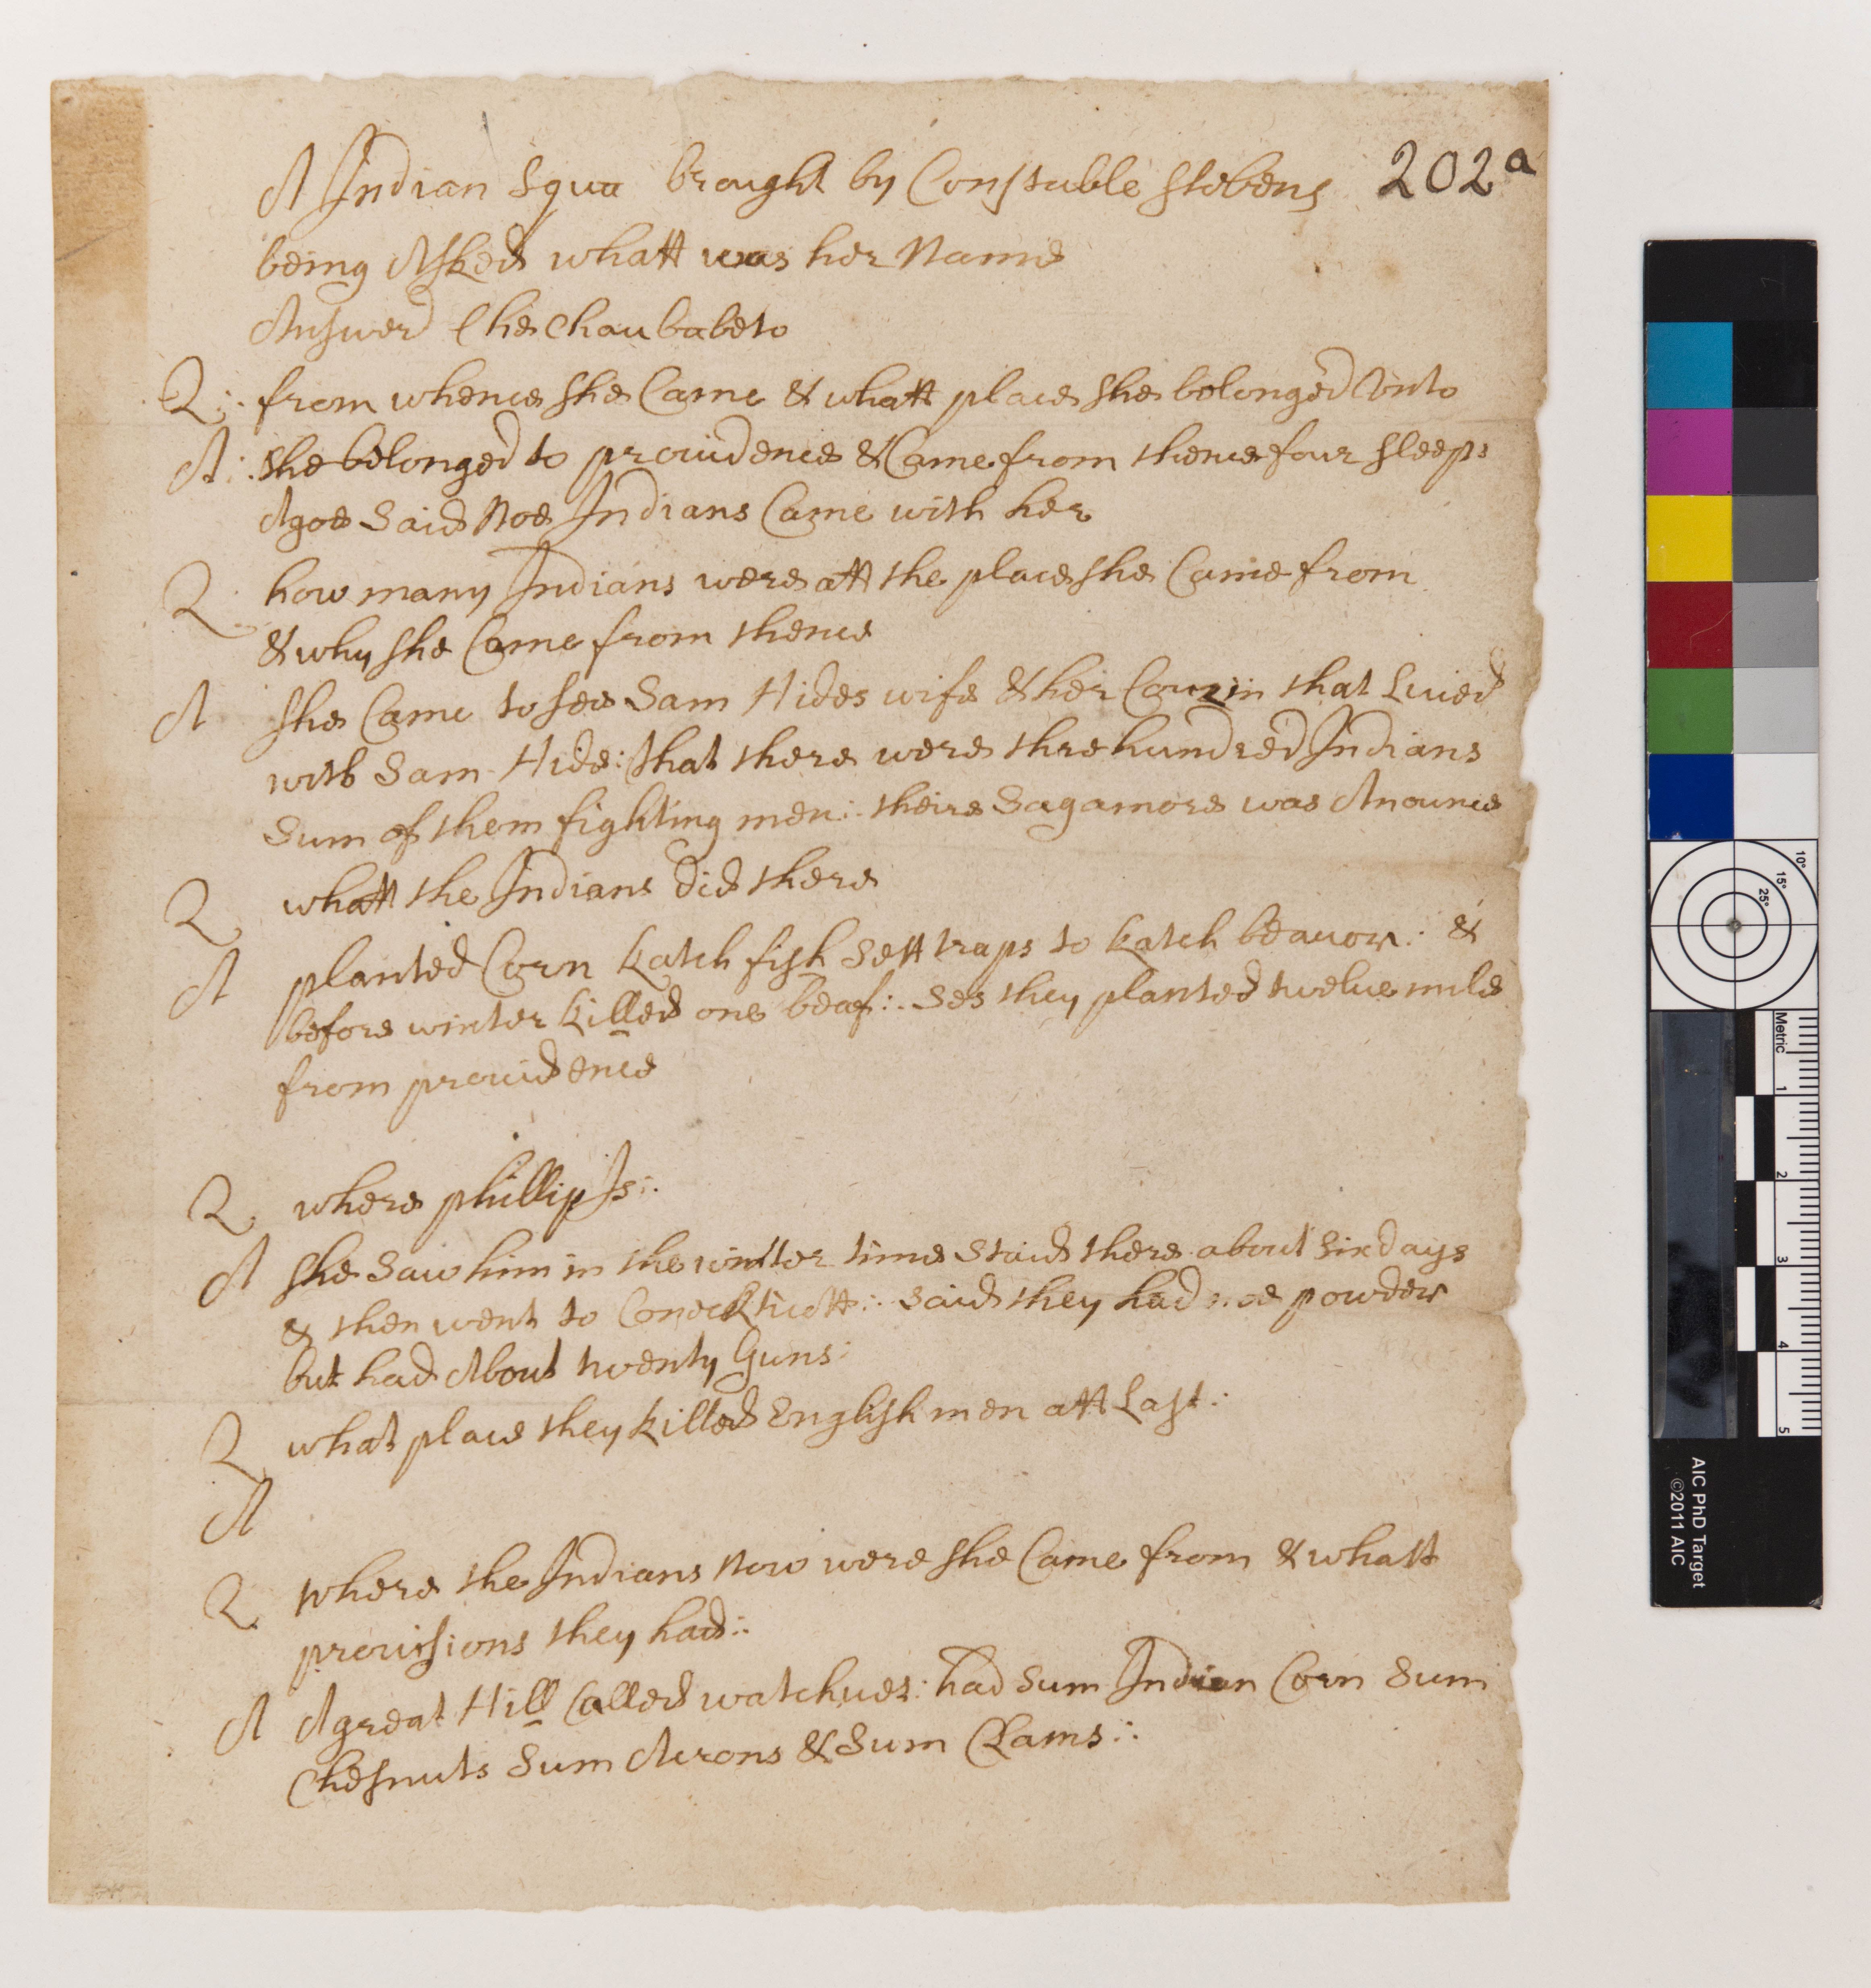 A Indian Squa brought by Constable Stebens 202a
being Asked whatt was her Name
Answerd Chechaubabeto
Q: from whence she Came & whatt place she belonged Unto
A: she belonged to prouidence & Came from thence four sleeps
Agoe Said Noe Indians Came with her
Q how many Indians were att the place she Came from
& why she Came from thence
A she Came to see Sam Hides wife & her Couzin that Liued
with Sam Hide: that there were thre hundred Indians
Sum of them fighting men: theire Sagamore was Anounce
Q whatt the Indians did there
A planted Corn katch fish sett traps to katch beauor: &
before winter killed one beaf: ses they planted twelue mile
from prouidence
Q where phillip Is:
A she saw him in the winter time staid there about six days
& then went to Coneckticott: said they had noe powder
but had About twenty Guns:
Q what place they killed English men att Last:
A
Q where the Indians Now were she Came from & whatt
prouisions they had:
A A great Hill Called watchuet: had sum Indian Corn sum
Chesnuts sum Acrons & sum Clams:
Metric
1
2
3
4
5
10°
15°
25°
AIC PhD Target
©2011 AIC